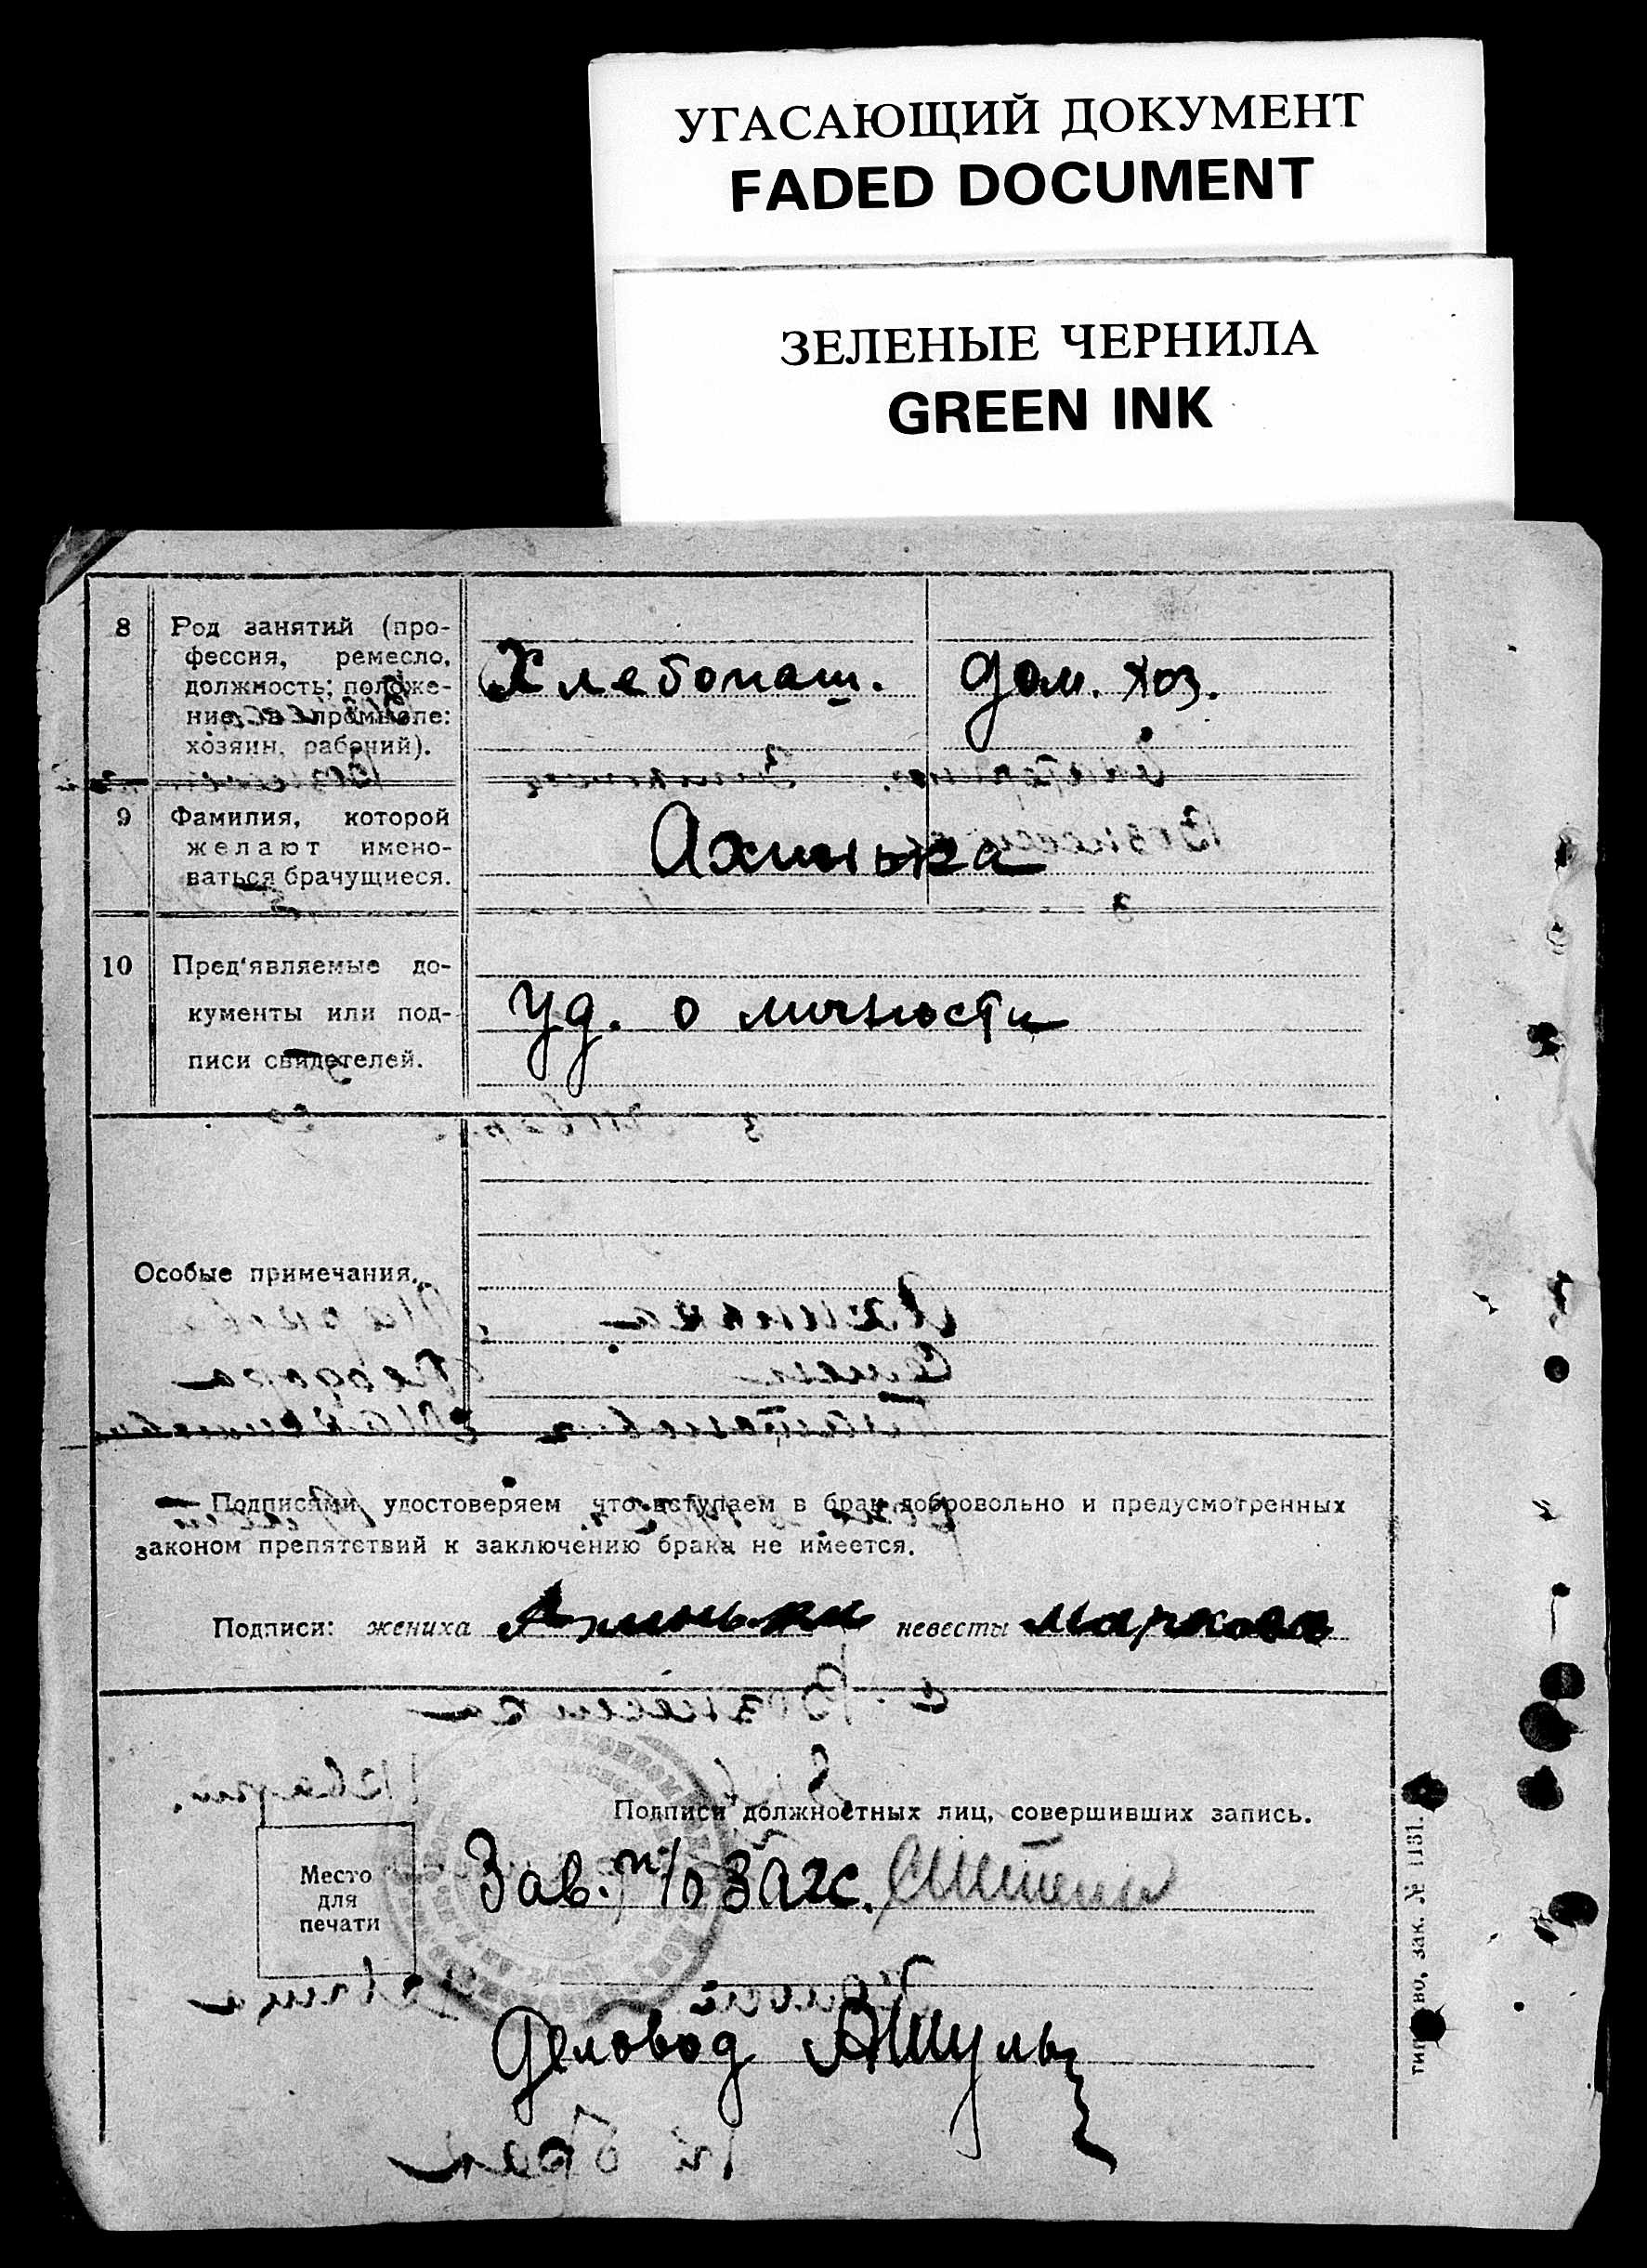 УГАСАЮЩИЙ ДОКУМЕНТ
FADED DOCUMENT
ЗЕЛЕНЫЕ ЧЕРНИЛА
GREEN INK
8 Род занятий (про-
фессия, ремесло,
должность; положе-
ние в промысле:
хозяин, рабочий).
Хлебопаш. дом. хоз.
9 Фамилия, которой
желают имено-
ваться брачущиеся.
Ахинька
10 Пред'являемые до-
кументы или под-
писи свидетелей.
Уд. о личности
Особые примечания.
Подписями удостоверяем что вступаем в брак добровольно и предусмотренных
законом препятствий к заключению брака не имеется.
Подписи: жениха Ахинька невесты Маркова
Подписи должностных лиц, совершивших запись.
Место
для
печати
Зав. п/о Загс.
Деловод АШульц
зак. № 1181.